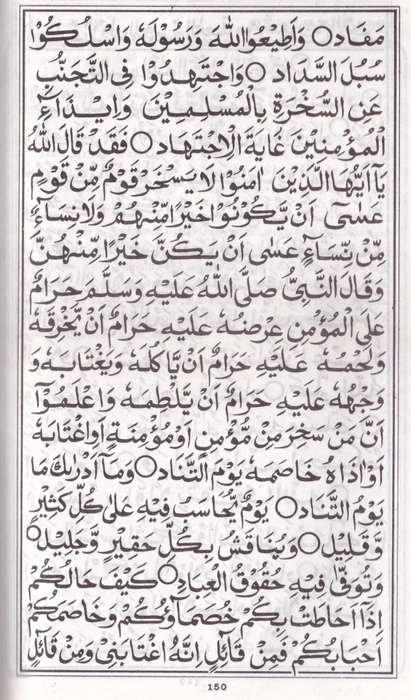 مَفَادٍ○ وَاَطِيْعُوا اللّٰهَ وَرَسُوْلَهٗ وَاسْلُكُوْا
سُبُلَ السَّدَادِ○ وَاجْتَهِدُوْا فِى التَّجَنُّبِ
عَنِ السُّخْرَةِ بِالْمُسْلِمِيْنَ وَاِيْذَآءِ
الْمُؤْمِنِيْنَ غَايَةَ الْاِجْتِهَادِ○ فَقَدْ قَالَ اللّٰهُ
يٰٓاَيُّهَا الَّذِيْنَ اٰمَنُوْا لَا يَسْخَرْ قَوْمٌ مِّنْ قَوْمٍ
عَسٰٓى اَنْ يَّكُوْنُوْا خَيْرًا مِّنْهُمْ وَلَا نِسَآءٌ
مِّنْ نِّسَآءٍ عَسٰٓى اَنْ يَّكُنَّ خَيْرًا مِّنْهُنَّ
وَقَالَ النَّبِيُّ صَلَّى اللّٰهُ عَلَيْهِ وَسَلَّمَ حَرَامٌ
عَلَى الْمُؤْمِنِ عِرْضُهٗ عَلَيْهِ حَرَامٌ اَنْ يَّخْرِقَهٗ
وَلَحْمُهٗ عَلَيْهِ حَرَامٌ اَنْ يَّاْكُلَهٗ وَيَغْتَابَهٗ وَ
وَجْهُهٗ عَلَيْهِ حَرَامٌ اَنْ يَّلْطِمَهٗ وَاعْلَمُوْٓا
اَنَّ مَنْ سَخِرَ مِنْ مُّؤْمِنٍ اَوْ مُؤْمِنَةٍ اَوِ اغْتَابَهٗ
اَوْ اٰذَاهُ خَاصَمَهٗ يَوْمَ التَّنَادِ○ وَمَآ اَدْرٰىكَ مَا
يَوْمُ التَّنَادِ○ يَوْمٌ يُّحَاسَبُ فِيْهِ عَلٰى كُلِّ كَثِيْرٍ
وَّقَلِيْلٍ○ وَيُنَاقَشُ بِكُلِّ حَقِيْرٍ وَّجَلِيْلٍ○
وَتُوَفّٰى فِيْهِ حُقُوْقُ الْعِبَادِ○ كَيْفَ حَالُكُمْ
اِذَآ اَحَاطَتْ بِكُمْ خُصَمَآؤُكُمْ وَخَاصَمَكُمْ
اَحْبَابُكُمْ فَمِنْ قَآئِلٍ اِنَّهُ اغْتَابَنِيْ وَمِنْ قَآئِلٍ
150